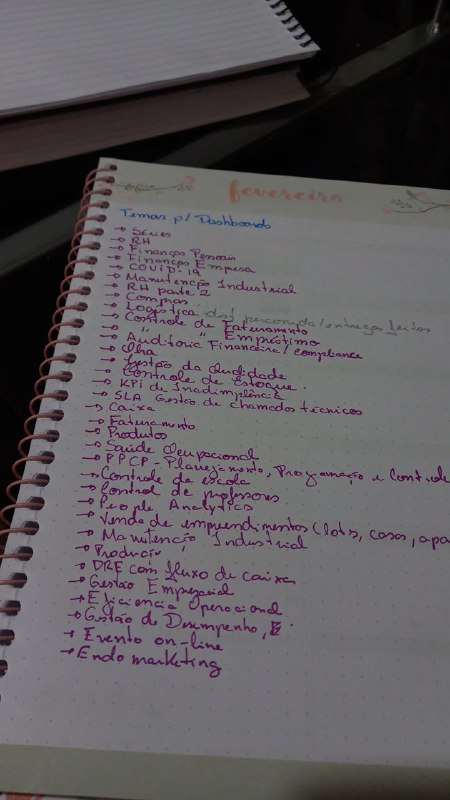 fevereiro
Temas p/ Dashboards
→ Séries
→ RH
→ Finanças Pessoais
→ Finanças Empresa
→ COVID-19
→ Manutenção Industrial
→ RH parte 2
→ Compras
→ Logística dist percorrida/entregas feitas
→ Controle de Faturamento
→ " " Empréstimo
→ Auditoria Financeira/compliance
→
→ Gestão da Qualidade
→ Controle de Estoque.
→ KPI de Inadimplência
→ SLA Gestão de chamados técnicos
→ Caixa
→ Faturamento
→ Produtos
→ Saúde Ocupacional
→ PPCP - Planejamento, Programação e Controle
→ Controle de escola
→ Control de professores
→ People Analytics
→ Venda de empreendimentos (lots, casas, apa
→ Manutenção Industrial
→ Produção
→ DRE com fluxo de caixa
→ Gestão Empresarial
→ Eficiência Operacional
→ Gestão de Desempenho,
→ Evento on-line
→ Endomarketing